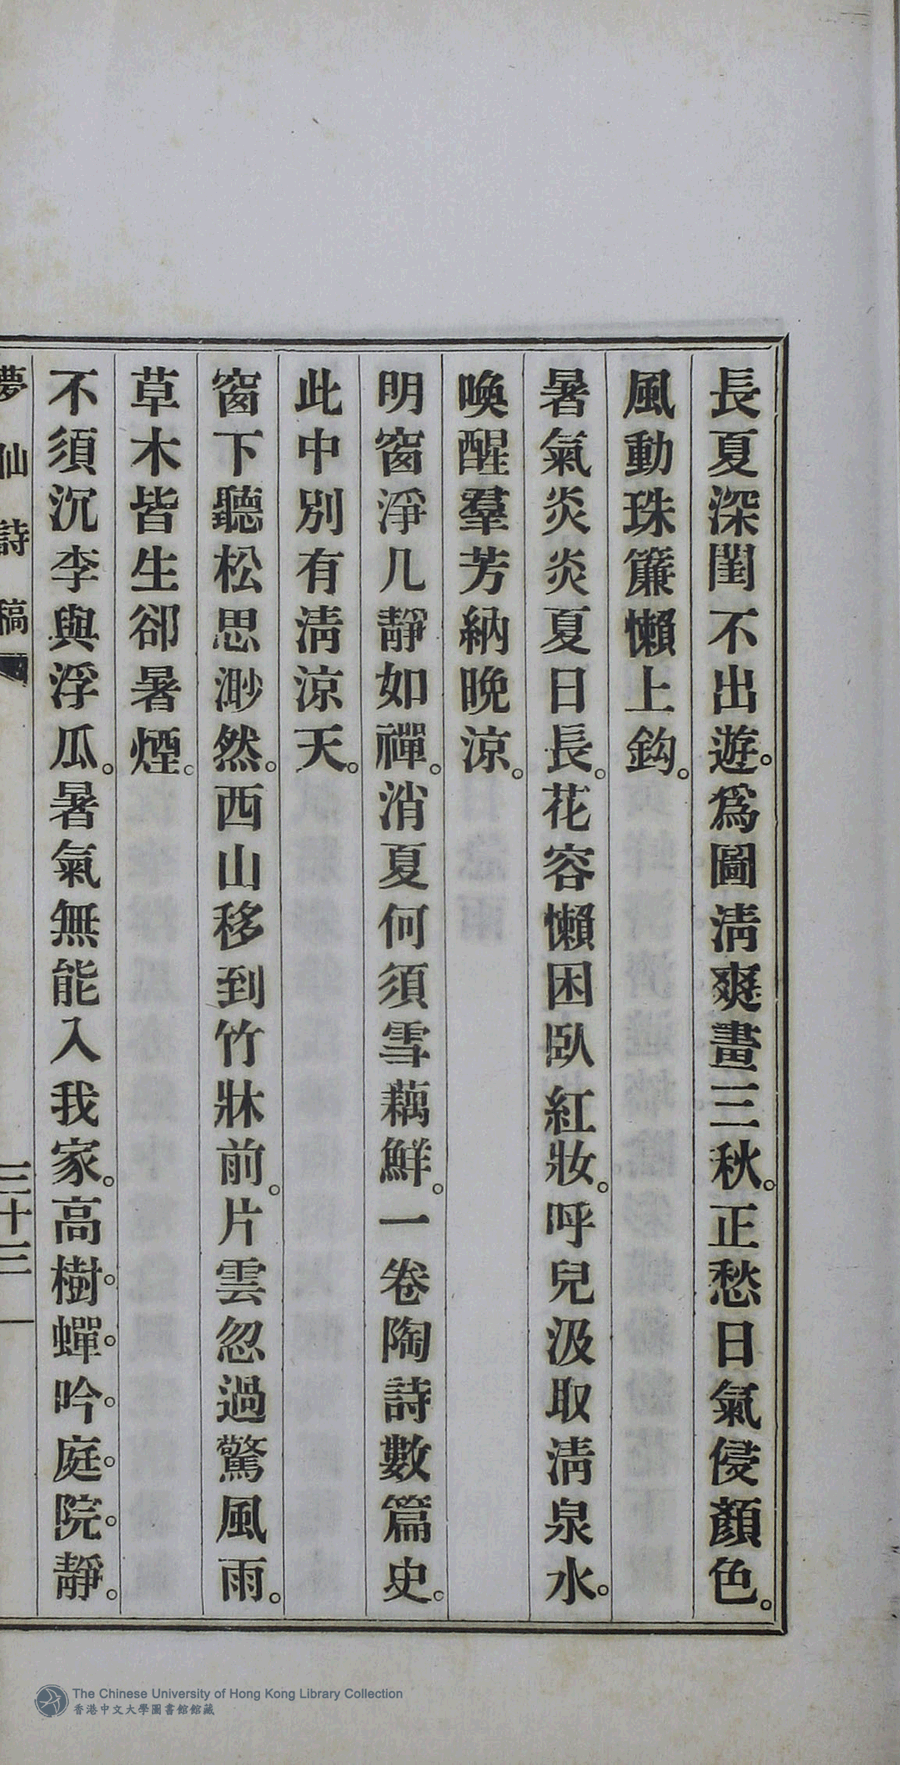 長夏深閨不出遊。爲圖淸爽畫三秋。正愁日氣侵顏色。
風動珠簾懶上鈎。
暑氣炎炎夏日長。花容懶困臥紅妝。呼兒汲取淸泉水。
喚醒羣芳納晚涼。
明窗淨几靜如禪。消夏何須雪藕鮮。一卷陶詩數篇史。
此中別有淸涼天。
窗下聽松思渺然。西山移到竹牀前。片雲忽過驚風雨。
草木皆生卻暑煙。
不須沉李與浮瓜。暑氣無能入我家。高樹。蟬。吟。庭。院。靜。
夢仙詩稿
三十三
The Chinese University of Hong Kong Library Collection
香港中文大學圖書館館藏